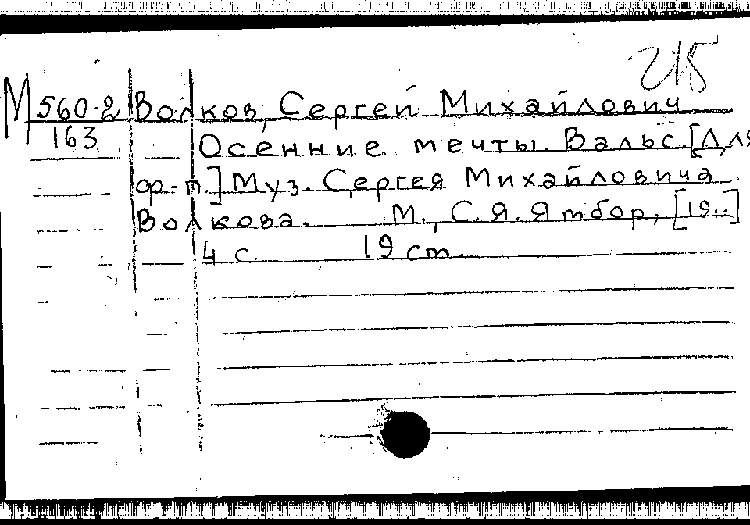 215
М 560-2 Волков, Сергей Михайлович
163 Осенние мечты. Вальс. [Для
фр-п.] Муз. Сергея Михайловича
Волкова. М., С.Я. Ямбор, [19..]
4 с. 19 cm